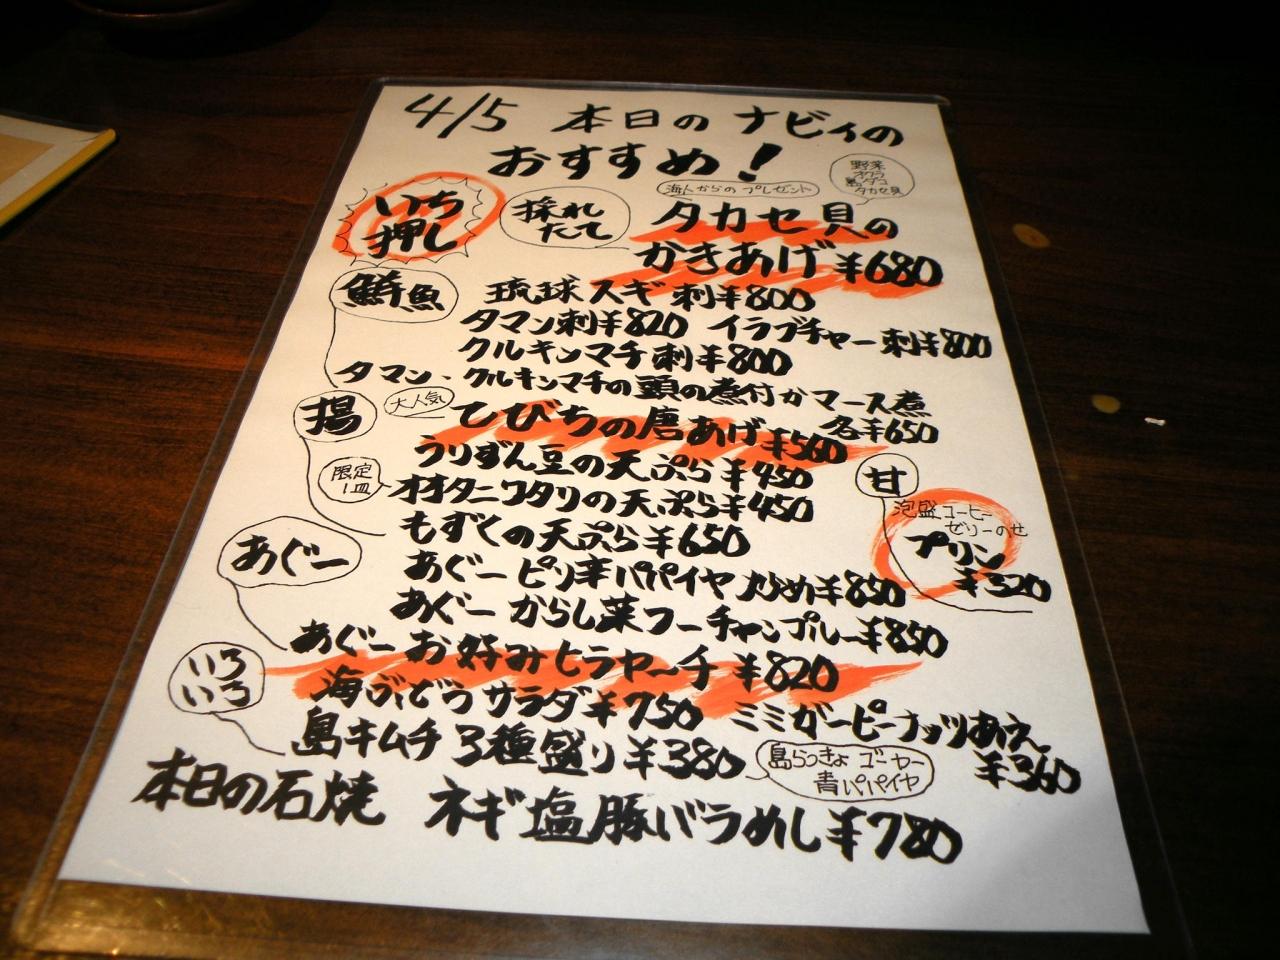 4/5 本日のナビィの
おすすめ!
野菜
オクラ
島ダコ
タカセ貝
海人からのプレゼント
いち
押し
採れ
たて
タカセ貝の
かきあげ ¥680
鮮魚
琉球スギ刺¥800
タマン刺¥820 イラブチャー刺¥800
クルキンマチ刺¥800
タマン・クルキンマチの頭の煮付かマース煮
各¥650
揚
大人気
てびちの唐あげ¥560
うりずん豆の天ぷら¥450
限定
1皿
オオタニワタリの天ぷら¥450
もずくの天ぷら¥650
甘
泡盛コーヒー
ゼリーのせ
プリン
¥320
あぐー
あぐーピリ辛パパイヤ炒め¥850
あぐーからし菜フーチャンプルー¥850
あぐーお好みヒラヤーチ¥820
いろ
いろ
海ぶどうサラダ¥750 ミミガーピーナッツあえ
¥360
島キムチ3種盛り¥380
島らっきょ ゴーヤー
青パパイヤ
本日の石焼 ネギ塩豚バラめし¥780